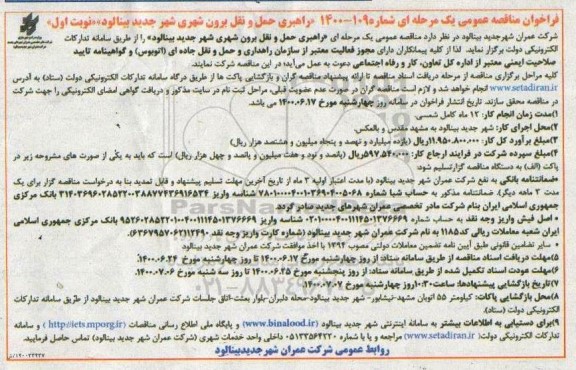 فراخوان مناقصه عمومی یک مرحله ای شماره ۱۰۹-۱۴۰۰ «راهبری حمل و نقل برون شهری شهر جدید بینالود»«نوبت اول»
شرکت عمران شهرجدید بینالود در نظر دارد مناقصه عمومی یک مرحله ای «راهبری حمل و نقل برون شهری شهر جدید بینالود» را از طریق سامانه تدارکات
الکترونیکی دولت برگزار نماید. لذا از کلیه پیمانکاران دارای مجوز فعالیت معتبر از سازمان راهداری و حمل و نقل جاده ای (اتوبوس) و گواهینامه تایید
صلاحیت ایمنی معتبر از اداره کل تعاون، کار و رفاه اجتماعی دعوت به عمل می‌آید؛ در این مناقصه شرکت نمایند.
کلیه مراحل برگزاری مناقصه از مرحله دریافت اسناد مناقصه تا ارائه پیشنهاد مناقصه گران و بازگشایی پاکت ها از طریق درگاه سامانه تدارکات الکترونیکی دولت (ستاد) به آدرس
www.setadiran.ir انجام خواهد شد و لازم است مناقصه گران در صورت عدم عضویت قبلی، مراحل ثبت نام در سایت مذکور و دریافت گواهی امضای الکترونیکی را جهت شرکت
در مناقصه محقق سازند. تاریخ انتشار فراخوان در سامانه روز چهارشنبه مورخ ۱۴۰۰.۰۶.۱۷ می باشد.
۱)مدت زمان انجام کار: ۱۲ ماه کامل شمسی.
۲)محل اجرای کار: شهر جدید بینالود به مشهد مقدس و بالعکس.
۳)مبلغ برآورد کل کار: ۱۱.۹۵۰.۸۰۰.۰۰۰ریال (یازده میلیارد و نهصد و پنجاه میلیون و هشتصد هزار ریال)
۴)مبلغ سپرده شرکت در فرایند ارجاع کار: ۵۹۷.۵۴۰.۰۰۰ریال (پانصد و نود و هفت میلیون و پانصد و چهل هزار ریال) است که باید به یکی از صورت های مشروحه زیر در
پاکت (الف) به دستگاه مناقصه گزارتسلیم شود:
•ضمانتنامه بانکی به نفع شرکت عمران شهر جدید بینالود (با مدت اعتبار اولیه ۳ ماه از تاریخ آخرین مهلت تسلیم پیشنهاد و قابل تمدید بنا به درخواست مناقصه گزار برای یک
مدت ۳ ماهه دیگر). ضمانتنامه مذکور به حساب شبا شماره شناسه واریز بانک مرکزی
جمهوری اسلامی ایران بنام شرکت مادر تخصصی عمران شهرهای جدید صادر گردد.
• اصل فیش واریز وجه نقد به حساب شماره شناسه واریز بانک مرکزی جمهوری اسلامی
ایران شعبه معاملات ریالی کد۱۱۸۵ به نام شرکت عمران شهر جدید بینالود (شماره کارت واریز وجه نقد )
• سایر تضامین قانونی طبق آیین نامه تضمین معاملات دولتی مصوب ۱۳۹۴ با اخذ موافقت شرکت عمران شهر جدید بینالود
۵)مهلت دریافت اسناد مناقصه از طریق سامانه ستاد: از روز چهارشنبه مورخ ۱۴۰۰.۰۶.۱۷ تا روز چهارشنبه مورخ ۱۴۰۰.۰۶.۲۴.
۶)مهلت عودت اسناد تکمیل شده از طریق سامانه ستاد: از روز پنجشنبه مورخ ۱۴۰۰.۰۶.۲۵ تا روز سه شنبه مورخ ۱۴۰۰.۰۷.۰۶.
۷)تاریخ بازگشایی پیشنهادها: ساعت۱۰:۳۰روز چهارشنبه مورخ ۱۴۰۰.۰۷.۰۷
۸)محل بازگشایی پاکات: کیلومتر ۵۵ اتوبان مشهد-نیشابور- شهر جدید بینالود-محله دلبران-بلوار بعثت-اتاق جلسات شرکت عمران شهر جدید بینالود از طریق سامانه تدارکات
الکترونیکی دولت (ستاد).
۹)برای دستیابی به اطلاعات بیشتر به سامانه اینترنتی شهر جدید بینالود (www.binalood.ir) و پایگاه ملی اطلاع رسانی مناقصات (http://iets.mporg.ir) و سامانه
تدارکات الکترونیکی دولت(www.setadiran.ir) مراجعه و یا با شماره ۰۵۱۳۲۵۶۴۲۲۰ داخلی واحد خدمات شهری (شرکت عمران شهر جدید بینالود) تماس حاصل فرمایید.
روابط عمومی شرکت عمران شهر جدیدبینالود